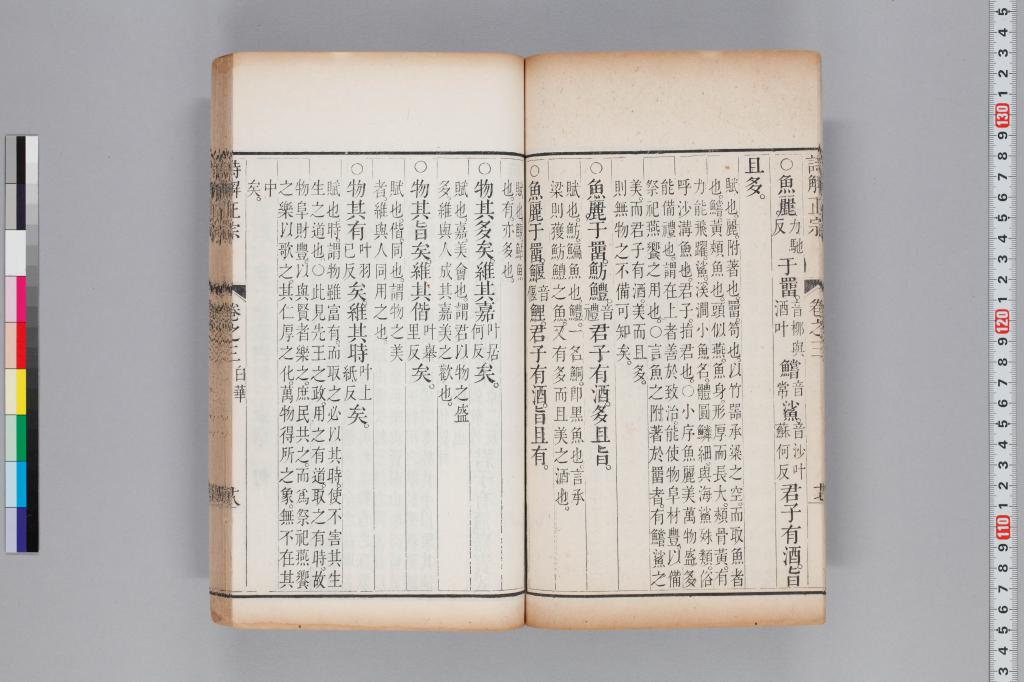 ○魚麗力馳反于罶音柳與酒叶鱨音常鯊音沙叶蘇何反君子有酒旨
且多
賦也麗附著也罶笱也以竹器承梁之空而取魚者
也鱨黃頰魚也頭似燕魚身形厚而長大頰骨黃有
力能飛躍鯊溪澗小魚名體圓鱗細與海鯊殊類俗
呼沙溝魚也君子指君也○小序魚麗美萬物盛多
能備禮也謂在上者善於致治能使物阜材豐以備
祭祀燕饗之用也○言魚之附著於罶者有鱨鯊之
美而君子有酒美而且多
則無物之不備可知矣
○魚麗于罶魴鱧音禮君子有酒多且旨
賦也魴鯿魚也鱧一名鯛卽黑魚也言承
梁則獲魴鱧之魚又有多而且美之酒也
○魚麗于罶鰋音偃鯉君子有酒旨且有
賦也鰋鮎魚
也有亦多也
○物其多矣維其嘉叶居何反矣
賦也嘉美會也謂君以物之盛
多維與人成其嘉美之歡也
○物其旨矣維其偕叶舉里反矣
賦也偕同也謂物之美
者維與人同用之也
○物其有叶羽已反矣維其時叶上紙反矣
賦也時謂物雖富有而取之必以其時使不害其生
生之道也○此見先王之政用之有道取之有時故
物阜財豐以與賢者樂之庶民共之而爲祭祀燕饗
之樂以歌之其仁厚之化萬物得所之象無不在其
中
矣
詩解正宗 卷之三 白華
詩解正宗 卷之三